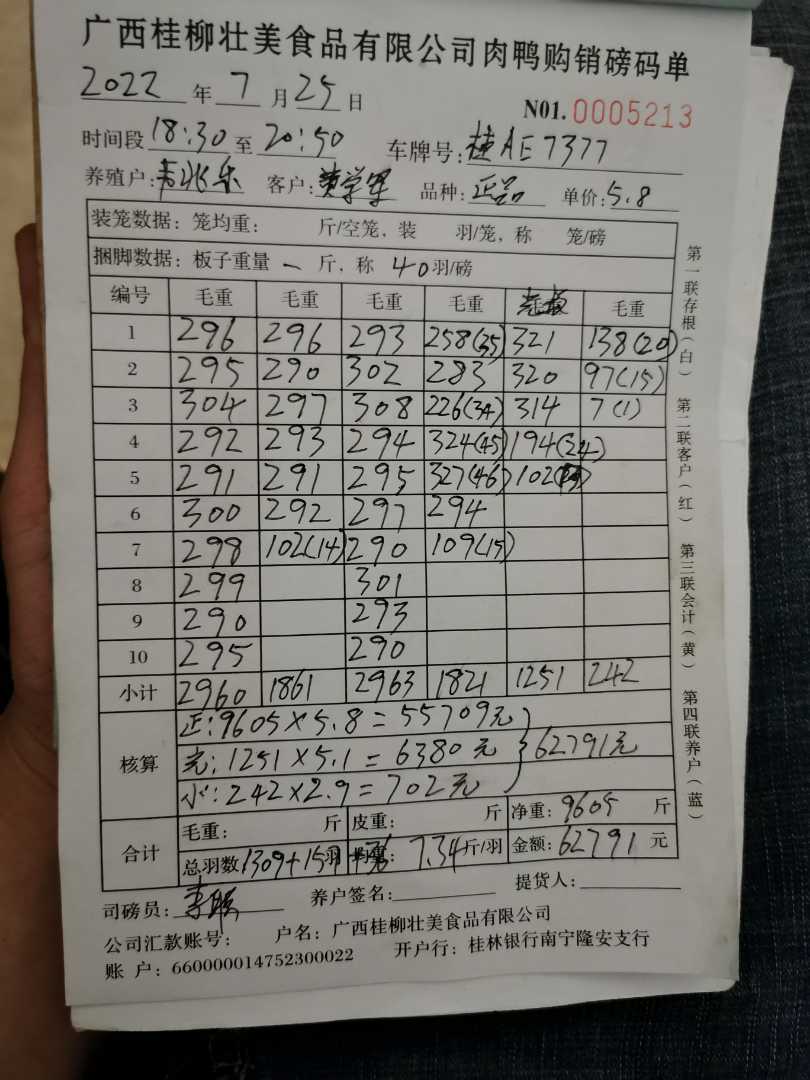 广西桂柳壮美食品有限公司肉鸭购销磅码单
2022 年 7 月 25 日 N01. 0005213
时间段 18:30 至 20:50 车牌号: 桂AE7377
养殖户: 客户: 黄学军 品种: 正品 单价: 5.8
装笼数据: 笼均重: 斤/空笼, 装 羽/笼, 称 笼/磅
捆脚数据: 板子重量 一 斤, 称 40 羽/磅
编号 毛重 毛重 毛重 毛重 毛重
1 296 296 293 258(35) 321 138(20)
2 295 290 302 283 320 97(15)
3 304 297 308 226(34) 314 7(1)
4 292 293 294 324(45) 194(24)
5 291 291 295 327(46) 102
6 300 292 297 294
7 298 102(14) 290 109(15)
8 299 301
9 290 293
10 295 290
小计 2960 1861 2963 1821 1251 242
核算 正: 9605×5.8=55709元
壳: 1251×5.1=6380元 } 62791元
小: 242×2.9=702元
合计 毛重: 斤 皮重: 斤 净重: 9605 斤
总羽数 1309+ 羽 7.34 斤/羽 金额: 62791 元
司磅员: 养户签名: 提货人:
公司汇款账号: 户名: 广西桂柳壮美食品有限公司
账 户: 660000014752300022 开户行: 桂林银行南宁隆安支行
第一联存根(白) 第二联客户(红) 第三联会计(黄) 第四联养户(蓝)